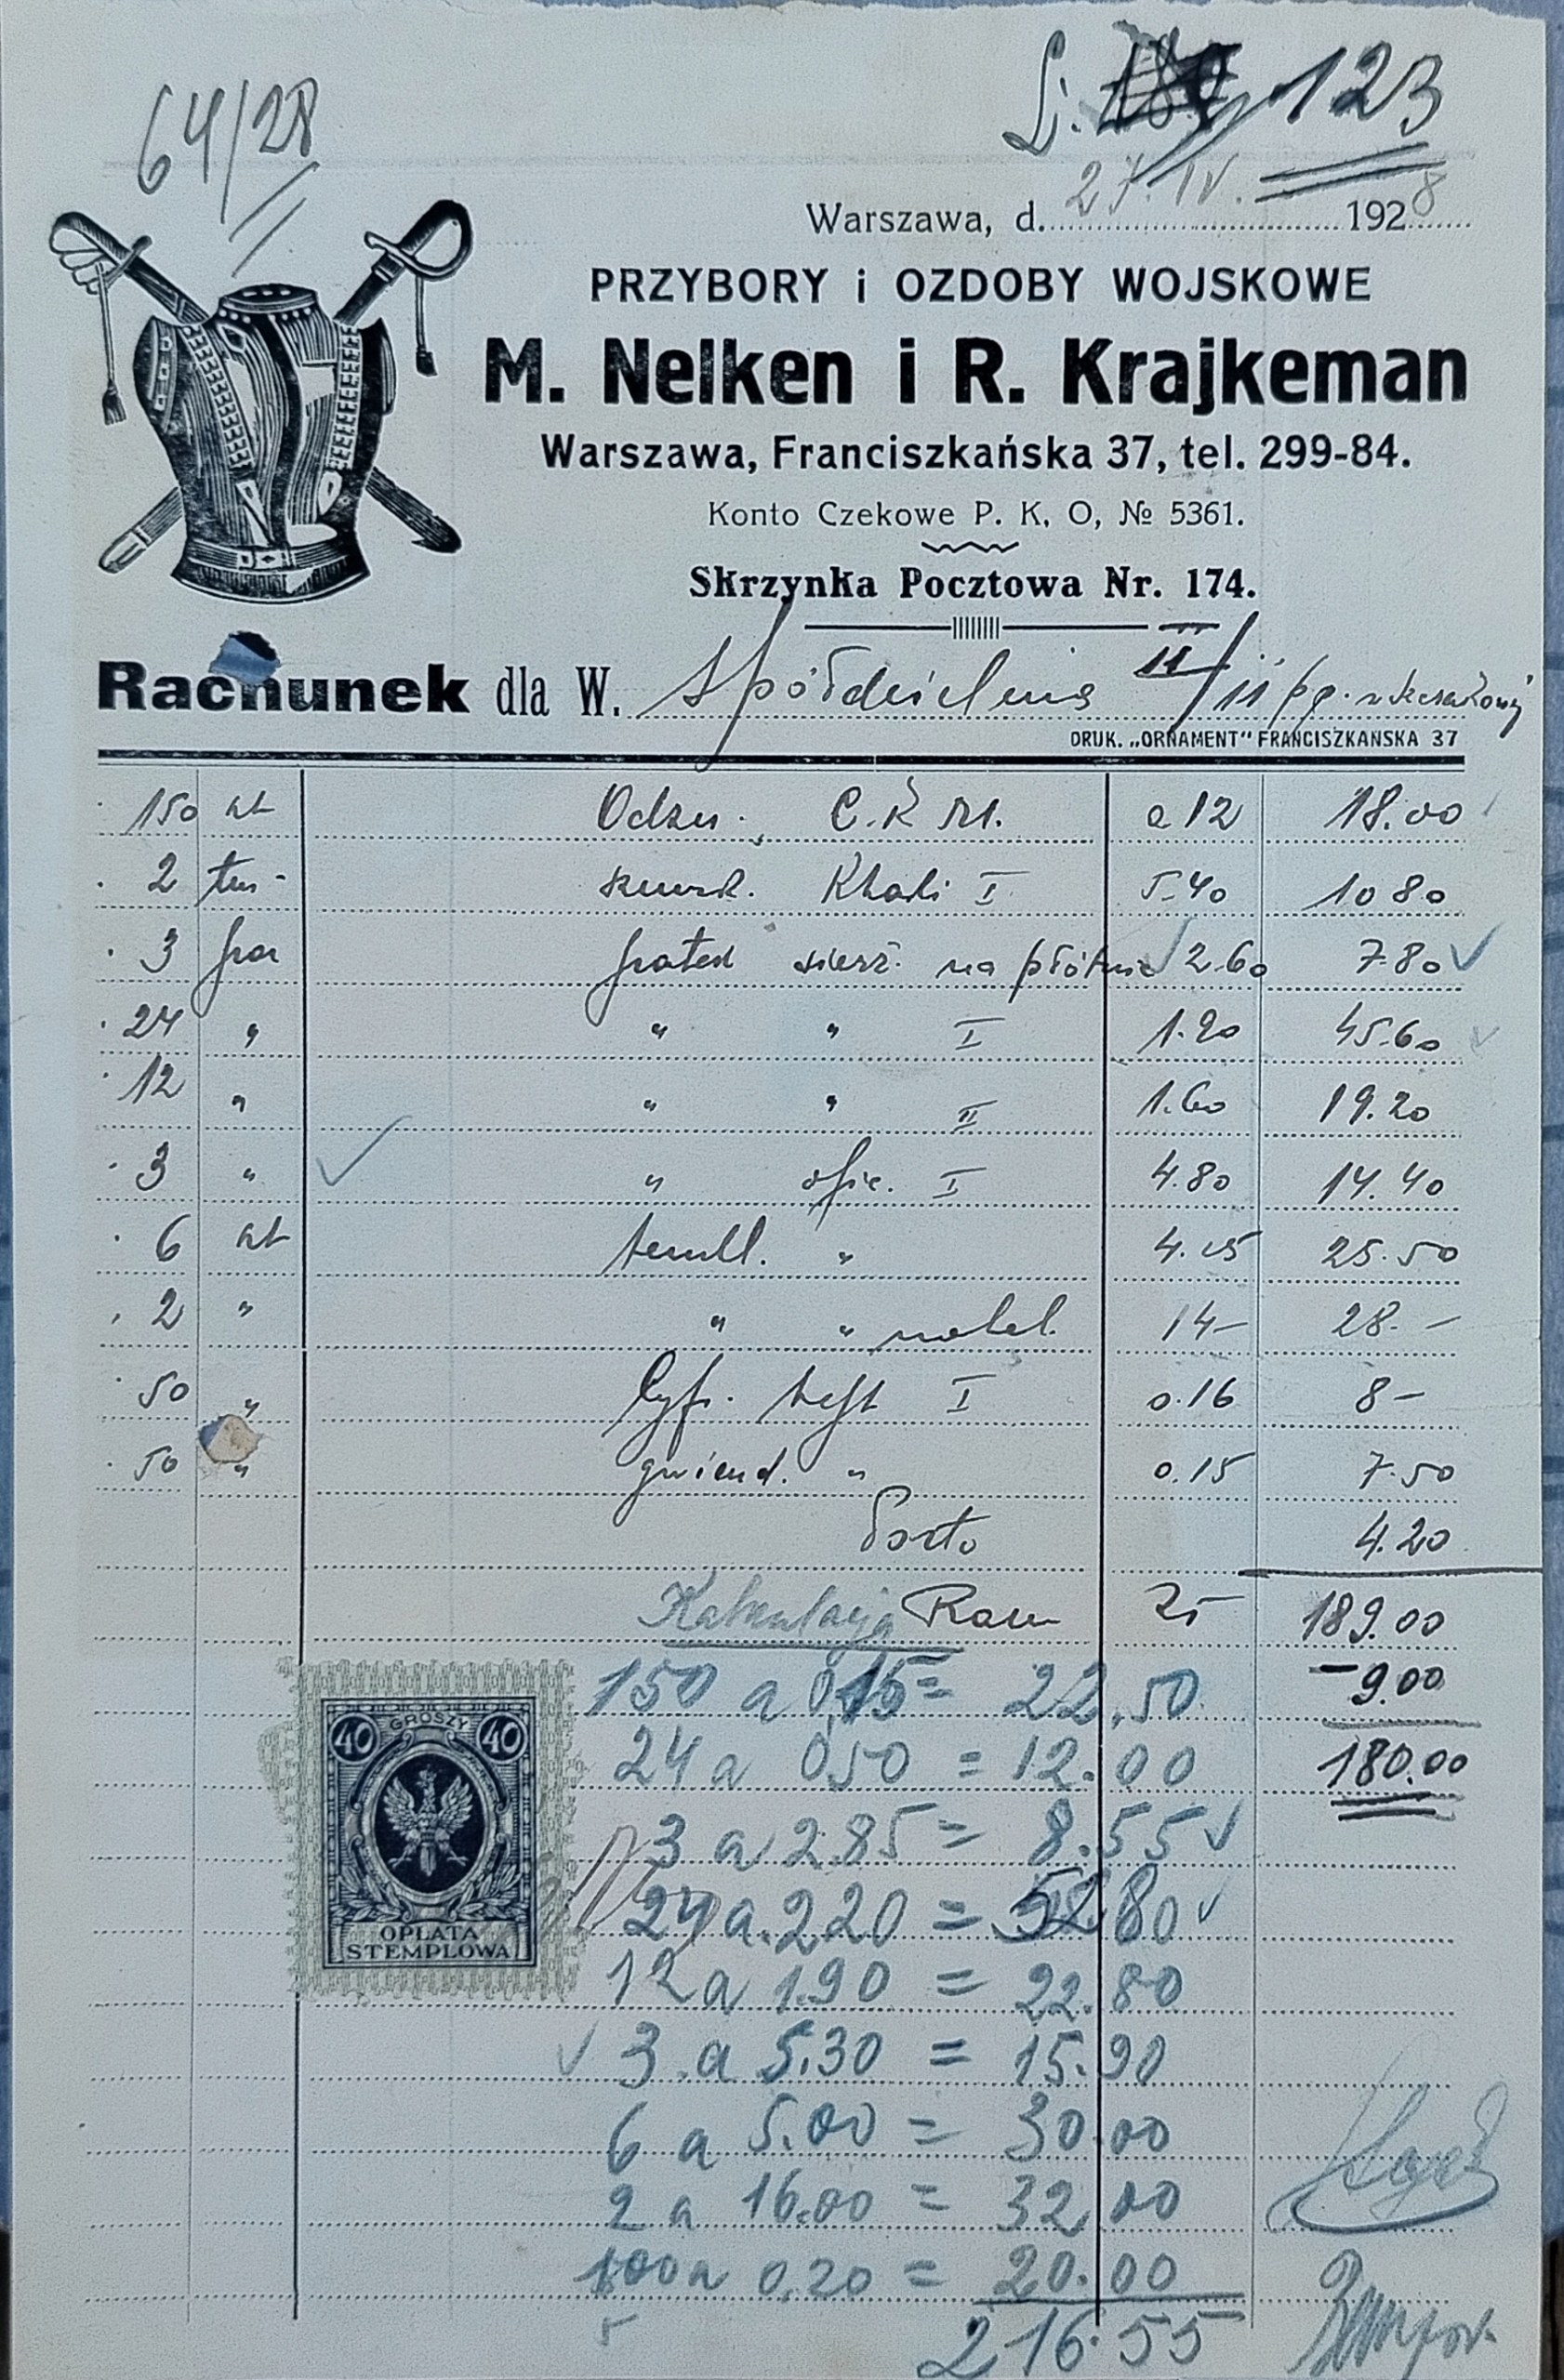 64/28
L. 123
Warszawa, d. 27. IV. 1928
PRZYBORY i OZDOBY WOJSKOWE
M. Nelken i R. Krajkeman
Warszawa, Franciszkańska 37, tel. 299-84.
Konto Czekowe P. K. O, № 5361.
Skrzynka Pocztowa Nr. 174.
Rachunek dla W. Spółdzielnia II/11 pp.
DRUK. „ORNAMENT" FRANCISZKAŃSKA 37
150 szt Odzn. C.K.M. a 12 18.00
2 tuz. sznurk. Khaki I 5.40 10 80
3 par patek sierż. na płótnie 2.60 7.80
24 " " " I 1.90 45.60
12 " " " II 1.60 19.20
3 " " ofic. I 4.80 14.40
6 szt tembl. " 4.25 25.50
2 " " " 14- 28.-
50 " Cyfr. haft I 0.16 8-
50 " gwiazd. " 0.15 7.50
Porto 4.20
Kalkulacja Razem Zł 189.00
150 a 0,15 = 22.50 -9.00
24 a 0,50 = 12.00 180.00
3 a 2.85 = 8.55
24 a 2.20 = 52.80
12 a 1.90 = 22.80
3 a 5.30 = 15.90
6 a 5.00 = 30.00
2 a 16.00 = 32.00
100 a 0.20 = 20.00
216.55
40 GROSZY 40
OPŁATA
STEMPLOWA